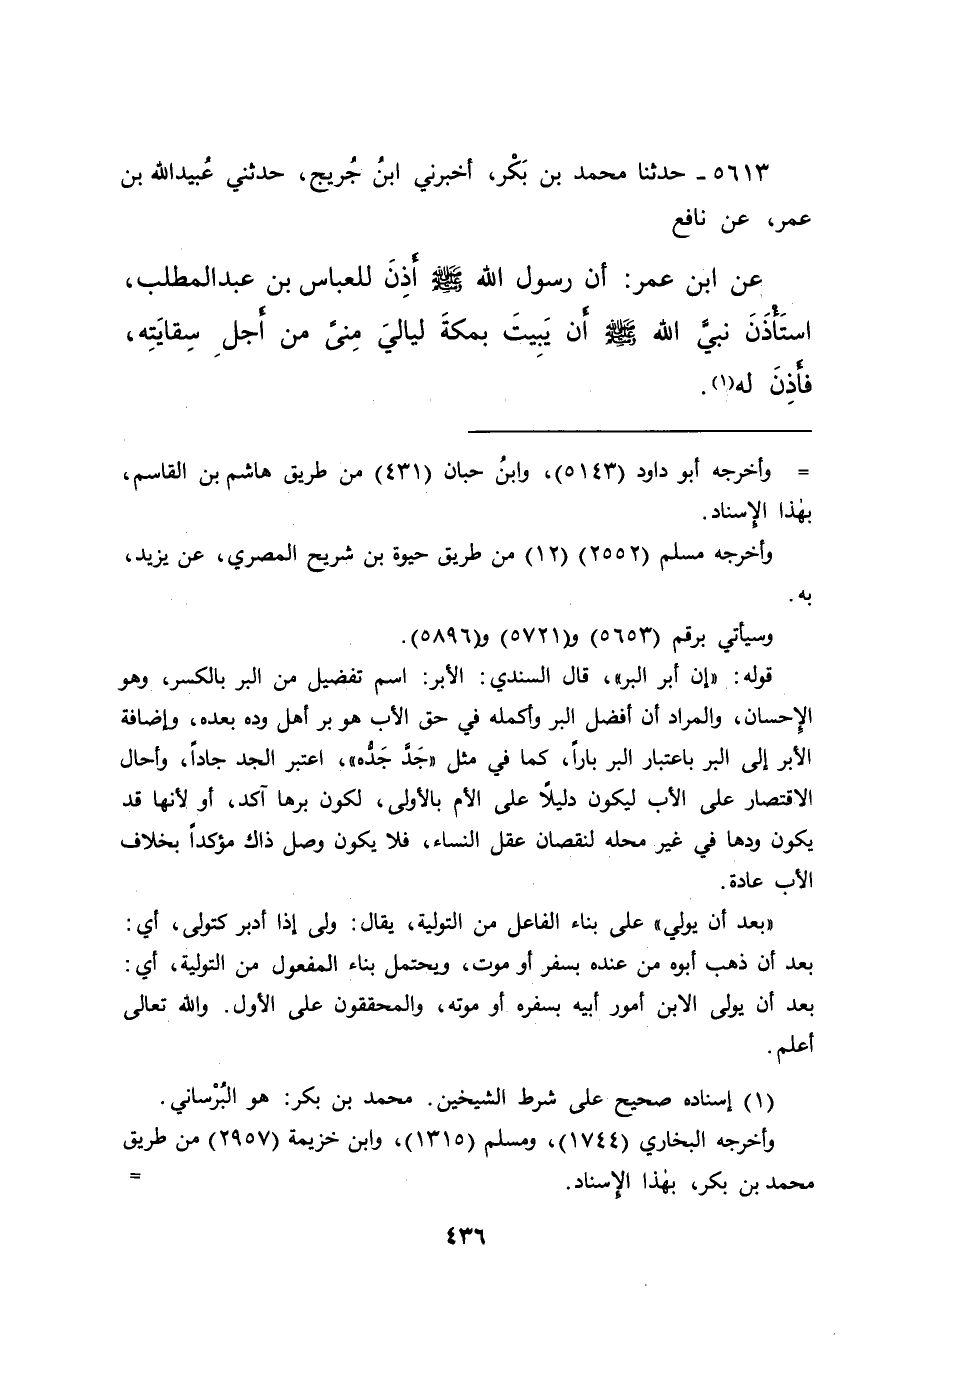 ٥٦١٣ - حدثنا محمد بن بَكْر، أخبرني ابنُ جُريج، حدثني عُبيدالله بن
عمر، عن نافع
عن ابن عمر: أن رسول الله ﷺ أَذِنَ للعباس بن عبدالمطلب،
استَأْذَنَ نبيَّ الله ﷺ أَن يَبِيتَ بمكةَ لياليَ مِنىً من أَجلِ سِقايَتِه،
فأَذِنَ له(١).
= وأخرجه أبو داود (٥١٤٣)، وابنُ حبان (٤٣١) من طريق هاشم بن القاسم،
بهٰذا الإسناد.
وأخرجه مسلم (٢٥٥٢) (١٢) من طريق حيوة بن شريح المصري، عن يزيد،
به.
وسيأتي برقم (٥٦٥٣) و(٥٧٢١) و(٥٨٩٦).
قوله: «إن أبر البر»، قال السندي: الأبر: اسم تفضيل من البر بالكسر، وهو
الإحسان، والمراد أن أفضل البر وأكمله في حق الأب هو بر أهل وده بعده، وإضافة
الأبر إلى البر باعتبار البر باراً، كما في مثل «جَدَّ جَدُّه»، اعتبر الجد جاداً، وأحال
الاقتصار على الأب ليكون دليلاً على الأم بالأولى، لكون برها آكد، أو لأنها قد
يكون ودها في غير محله لنقصان عقل النساء، فلا يكون وصل ذاك مؤكداً بخلاف
الأب عادة.
«بعد أن يولي» على بناء الفاعل من التولية، يقال: ولى إذا أدبر كتولى، أي:
بعد أن ذهب أبوه من عنده بسفر أو موت، ويحتمل بناء المفعول من التولية، أي:
بعد أن يولى الابن أمور أبيه بسفره أو موته، والمحققون على الأول. والله تعالى
أعلم.
(١) إسناده صحيح على شرط الشيخين. محمد بن بكر: هو البُرْساني.
وأخرجه البخاري (١٧٤٤)، ومسلم (١٣١٥)، وابن خزيمة (٢٩٥٧) من طريق
محمد بن بكر، بهٰذا الإسناد. =
٤٣٦